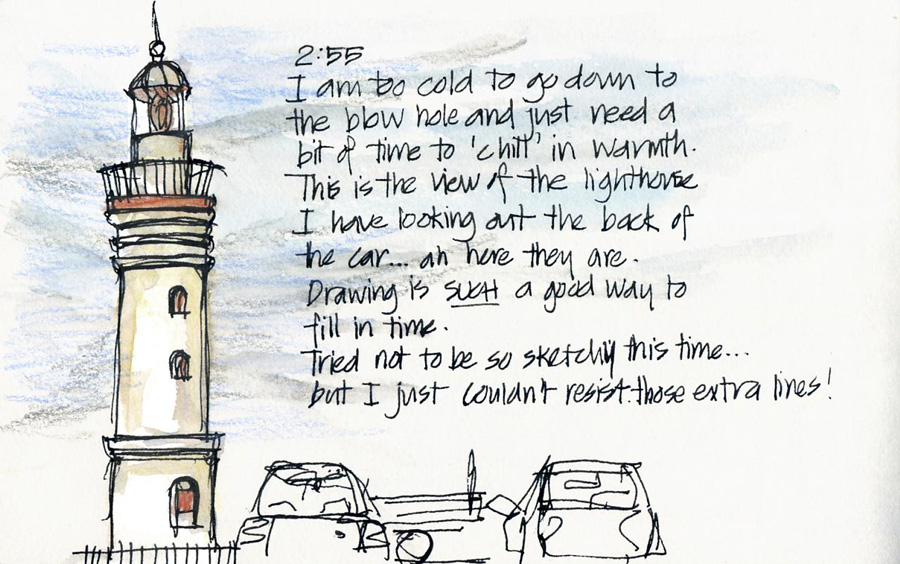 2:55
I am too cold to go down to
the blow hole and just need a
bit of time to 'chill' in warmth.
This is the view of the lighthouse
I have looking out the back of
the car... ah here they are.
Drawing is SUCH a good way to
fill in time.
Tried not to be so sketchy this time...
but I just couldn't resist those extra lines!